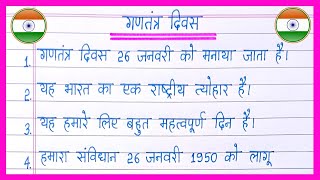 गणतंत्र दिवस
1. गणतंत्र दिवस 26 जनवरी को मनाया जाता है।
2. यह भारत का एक राष्ट्रीय त्योहार है।
3. यह हमारे लिए बहुत महत्वपूर्ण दिन है।
4. हमारा संविधान 26 जनवरी 1950 को लागू